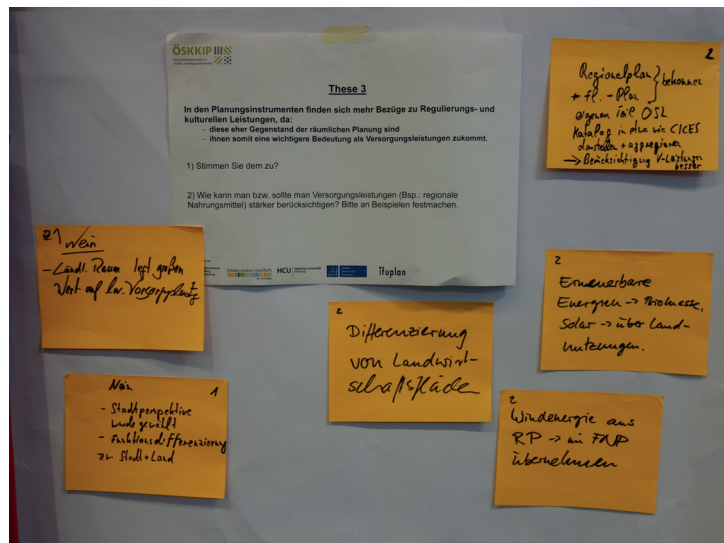 ÖSKKIP
These 3
In den Planungsinstrumenten finden sich mehr Bezüge zu Regulierungs- und
kulturellen Leistungen, da:
– diese eher Gegenstand der räumlichen Planung sind
– ihnen somit eine wichtigere Bedeutung als Versorgungsleistungen zukommt.
1) Stimmen Sie dem zu?
2) Wie kann man bzw. sollte man Versorgungsleistungen (Bsp.: regionale
Nahrungsmittel) stärker berücksichtigen? Bitte an Beispielen festmachen.
HCU
ifuplan
2
Regionalplan } bekommen
+ Fl.-Plan
eigenen Teil ÖSL
Katalog in etwa wie CICES
darstellen + aggregieren
→ Berücksichtigung V-Leistungen
besser
1
Nein
- Ländl. Raum legt großen
Wert auf
2
Differenzierung
von Landwirt-
schaftsflächen
2
Erneuerbare
Energien → Biomasse,
Solar → über Land-
nutzungen.
Nein 1
- Stadtperspektive
wurde gewählt
- Funktionsdifferenzierung
zu Stadt+Land
2
Windenergie aus
RP → im FNP
übernehmen